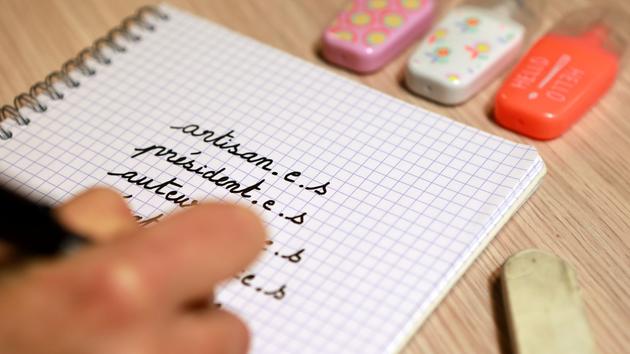 artisan.e.s
président.e.s
auteu
.s
e.s
HELLO
HELLO